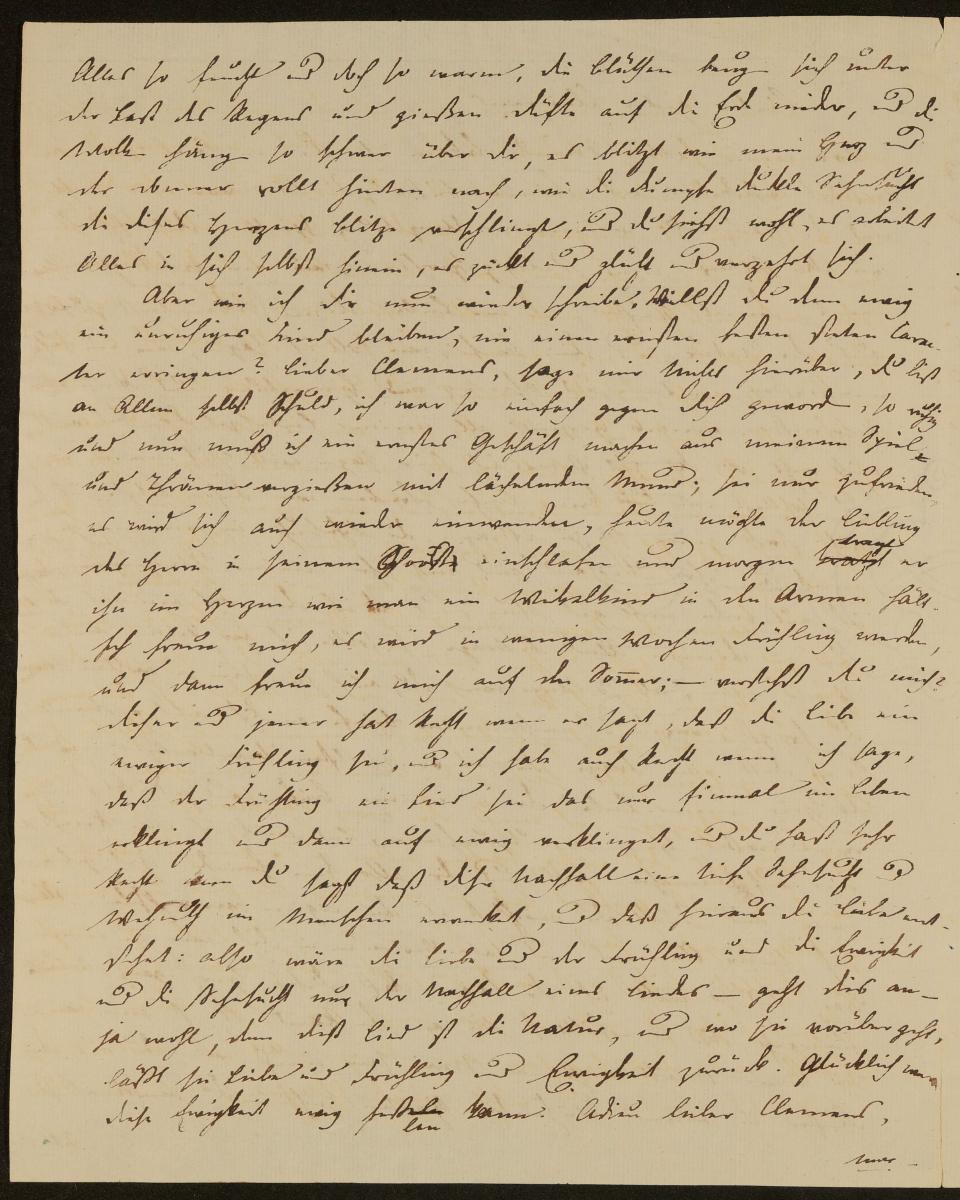 Alles so feucht und doch so warm, die Blüthen beugen sich unter
der Last des Regens und gießen Düfte auf die Erde nieder, und die
Wolken hängen so schwer über dir, es blitzt wie mein Herz und
der donner rollt hinten nach, wie die dumpfe dunkle Sehnsucht
die dieses Herzens blitze verschlingt, und du siehst wohl, es arbeitet
Alles in sich selbst hinein, es zückt und glüht und verzehrt sich.
Aber wie ich dir nun wieder schreibe, Willst du denn ewig
ein unruhiges Kind bleiben, nie einen ernsten festen steten Carac-
ter erringen? lieber Clemens, sage mir Nichts hierüber, du bist
an Allem selbst Schuld, ich war so einfach gegen dich geworden, so ruhig
und nun muß ich ein ernstes Geschäft machen aus meinem Spiel
und Thränen vergießen mit lächelndem Mund; sei nur zufrieden,
es wird sich auch wieder einwenden, heute möchte der liebling
des Herrn in seinem Schooße einschlafen und morgen trägt er
ihn im Herzen wie man ein Wikelkind in den Armen hält.
Ich freue mich, es wird in wenigen Wochen Frühling werden,
und dann freue ich mich auf den Sommer; — verstehst du mich?
dieser und jener hat Recht wenn er sagt, daß die liebe ein
ewiger Frühling sei, und ich habe auch Recht wenn ich sage,
daß der Frühling ein Lied sei das nur Einmal im leben
erklingt und dann auf ewig verklinget, und du hast sehr
Recht wenn du sagst daß dieser Nachhall eine tiefe Sehnsucht und
Wehmuth im Menschen erwecket, und daß hieraus die liebe ent-
stehet: also wäre die liebe und der Frühling und die Ewigkeit
und die Sehnsucht nur der Nachhall eines liedes — geht dies an —
ja wohl, denn dieß lied ist die Natur, und wo sie vorüber geht,
läßt sie liebe und Frühling und Ewigkeit zurück. Glücklich wer
diese Ewigkeit ewig fesseln kann. Adieu lieber Clemens,